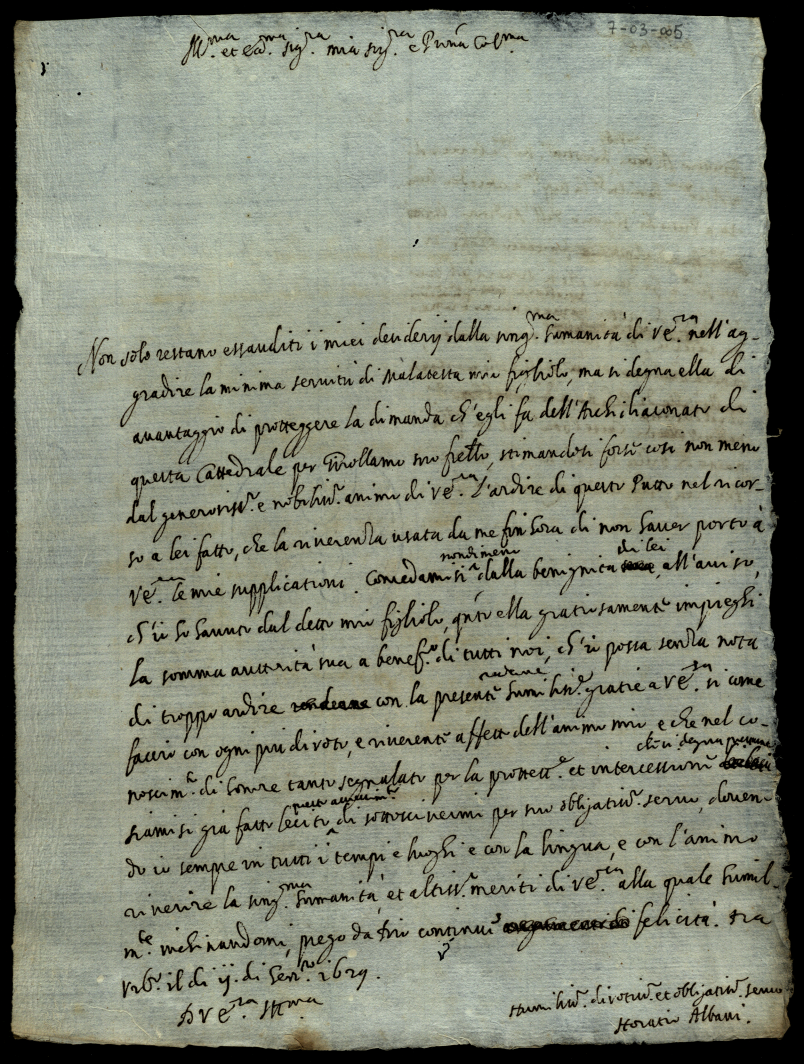 7-03-005
Ill.ma et ecc.ma sig.ra mia sig.ra e P̄rona Col.ma
Non solo restano essauditi i miei desiderij dalla sing.ma humanità di V E.za nell'ag-
gradire la minima servitù di Malatesta mio figliolo, ma si degna ella di
avantaggio di proteggere la dimanda ch'egli fa dell'Archidiaconato di
questa Cattedrale per Girollamo suo fr̄ello, stimandosi forse così non meno
dal generosiss.o e nobiliss.o animo di V E.za l'ardire di questo Putto nel ricor-
so a lei fatto, che la riverenza usata da me fin hora di non haver porto à
V E.za le mie supplicationi. Concedamisi nondimeno dalla benignità di lei, all'aviso,
ch'io ho havuto dal detto mio figliolo, q̄nto ella gratiosamente impieghi
la somma auttorità sua a benef.o di tutti noi, ch'io possa senza nota
di troppo ardire renderne con la presente humiliss.e gratie a V E.za si come
faccio con ogni più divoto, e riverente affetto dell'animo mio e che nel co-
noscim.to di honore tanto segnalato per la protett.e et intercessione che si degna
siami si già fatto lecito di sottoscrivermi per suo obligatiss.o servo, doven-
do io sempre in tutti i tempi e luoghi e con la lingua, e con l'animo
riverire la sing.ma humanità, et altiss.i meriti di V E.za alla quale humil-
m.te inchinandomi, prego da Dio continua felicità. Da
Urb.o il di ij. di Gen.ro 1629.
D V E.za Ill.ma
Humiliss.o divotiss.o et obligatiss.o servo
Horatio Albani.